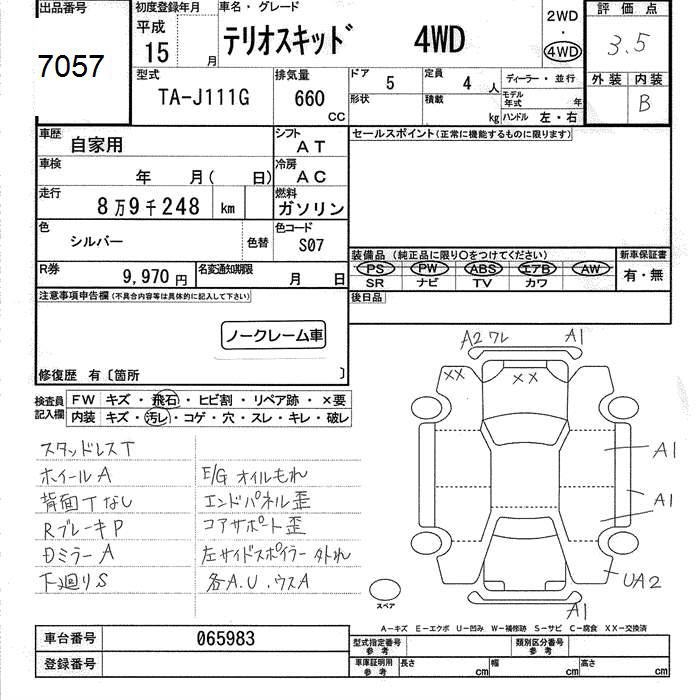 出品番号
7057
初度登録年月
平成
15 月
車名・グレード
テリオスキッド 4WD
2WD
・
4WD
評価点
3.5
外装 内装
B
型式
TA-J111G
排気量
660
CC
ドア 5
定員 4 人
形状
積載 kg
ディーラー・並行
モデル年式 年
ハンドル 左・右
車歴
自家用
シフト
AT
車検
年 月( 日)
冷房
AC
走行
8万9千248 km
燃料
ガソリン
色
シルバー
色替
色コード
S07
R券
9,970 円
名変通知期限
月 日
セールスポイント(正常に機能するものに限ります)
装備品 (純正品に限り○をつけてください)
PS PW ABS エアB AW
SR ナビ TV カワ
新車保証書
有・無
後日品
注意事項申告欄(不具合内容等は具体的に記入して下さい)
ノークレーム車
修復歴 有〔箇所 〕
検査員記入欄
FW キズ・飛石・ヒビ割・リペア跡・×要
内装 キズ・汚レ・コゲ・穴・スレ・キレ・破レ
スタッドレスT
ホイールA
背面Tなし
RブレーキP
DミラーA
下廻りS
E/Gオイルもれ
エンドパネル歪
コアサポート歪
左サイドスポイラー外れ
各A.U.ウスA
A2ワレ A1
XX XX
A1
A1
UA2
A1
スペア
A―キズ E―エクボ U―凹み W―補修跡 S―サビ C―腐食 XX―交換済
車台番号 065983
登録番号
型式指定番号
参考
類別区分番号
参考
車庫証明用
参考
長さ cm
幅 cm
高さ cm